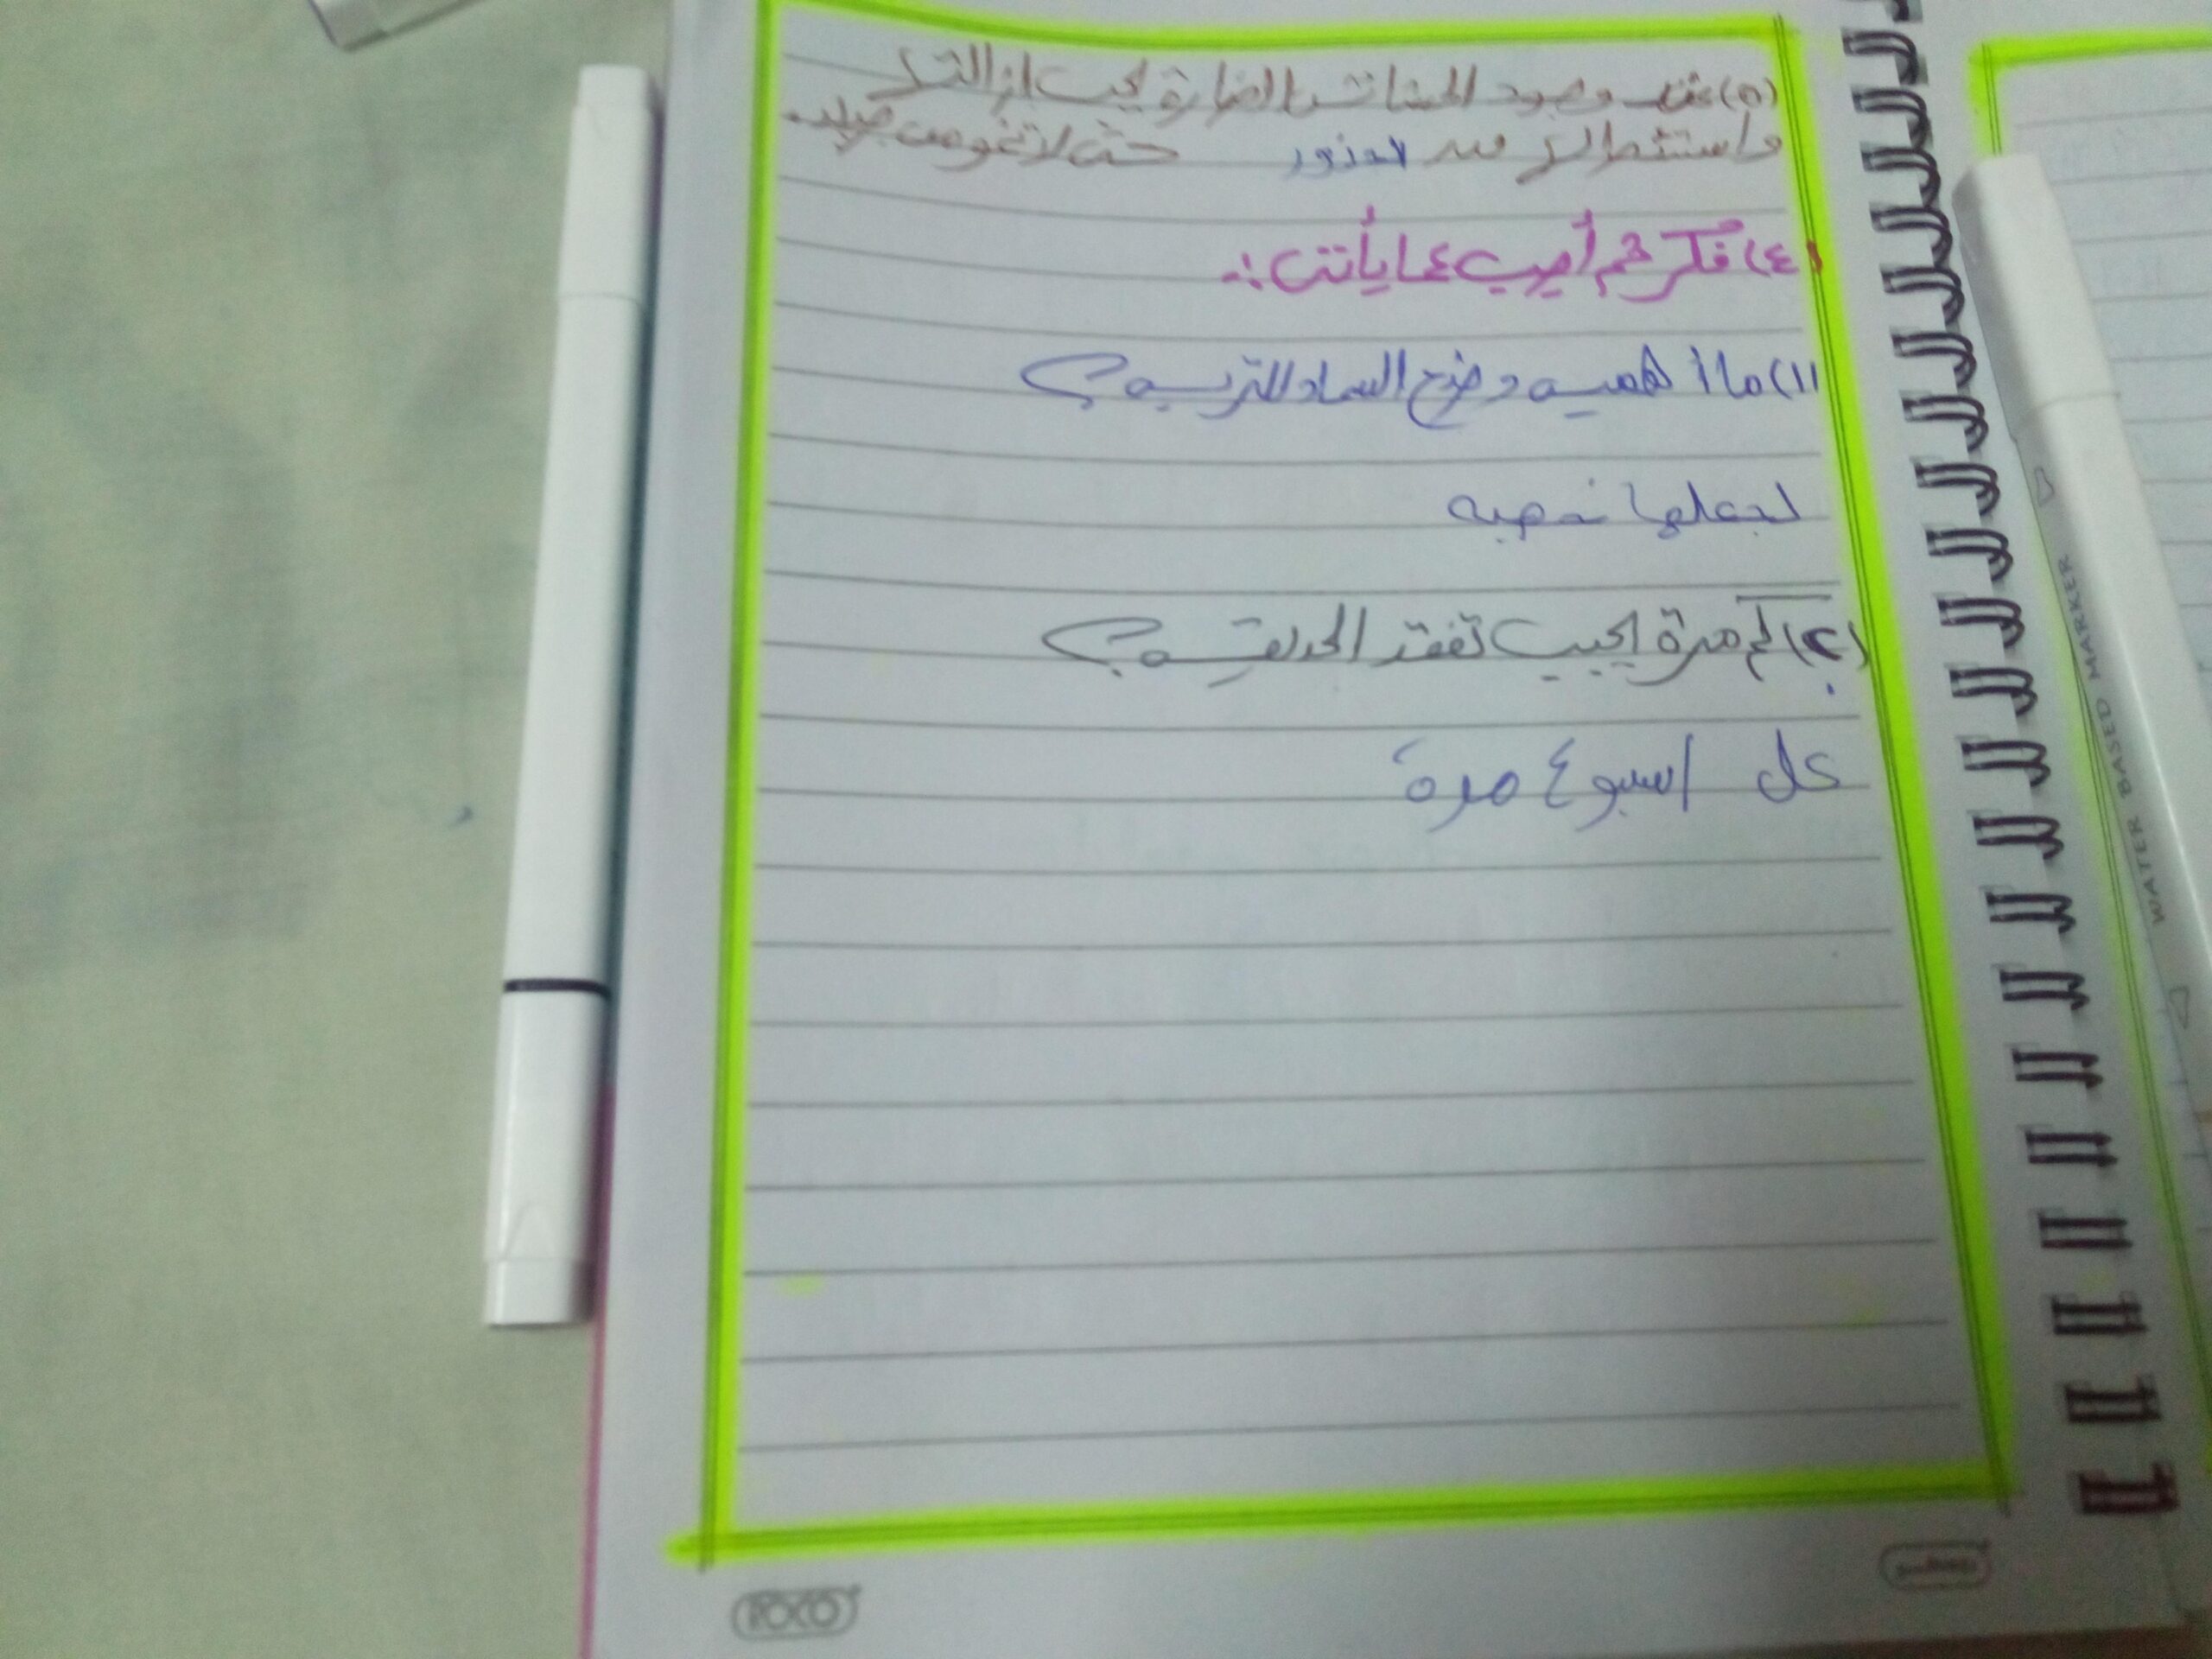 (٥) عند وجود الحشائش الضارة يجب ازالتها
واستئصالها من الجذور حتى لا تنمو من جديد.
(٤) فكر ثم أجيب عما يأتي :-
(١) ما أهميه وضع السماد للتربه؟
لجعلها خصبه
(٢) كم مرة يجب تفقد الحديقه؟
كل اسبوع مرة
WATER BASED MARKER
ROCO